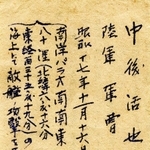 中後活也
陸軍軍曹
昭和十七年十一月十六日
南洋パラオ南南東
八十浬(北緯六度十六分
東経百三十五度十九分)の
海上にて敵艦攻撃を